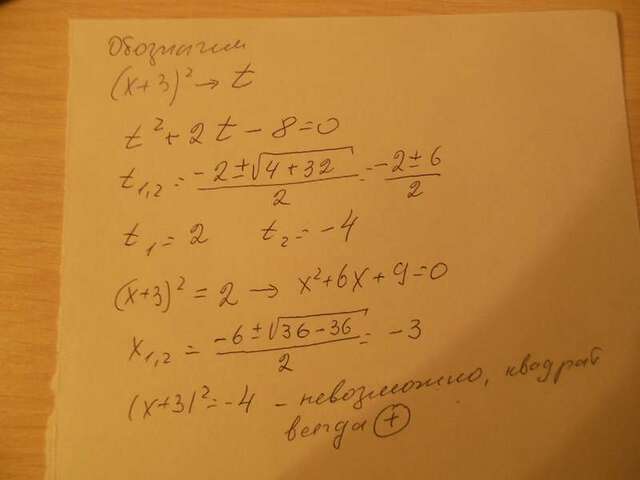 Обозначим
(x+3)² → t
t² + 2t - 8 = 0
t₁,₂ = (-2 ± √(4 + 32))/2 = (-2 ± 6)/2
t₁ = 2 t₂ = -4
(x+3)² = 2 → x² + 6x + 9 = 0
x₁,₂ = (-6 ± √(36 - 36))/2 = -3
(x+3)² = -4 - невозможно, квадрат
всегда (+)